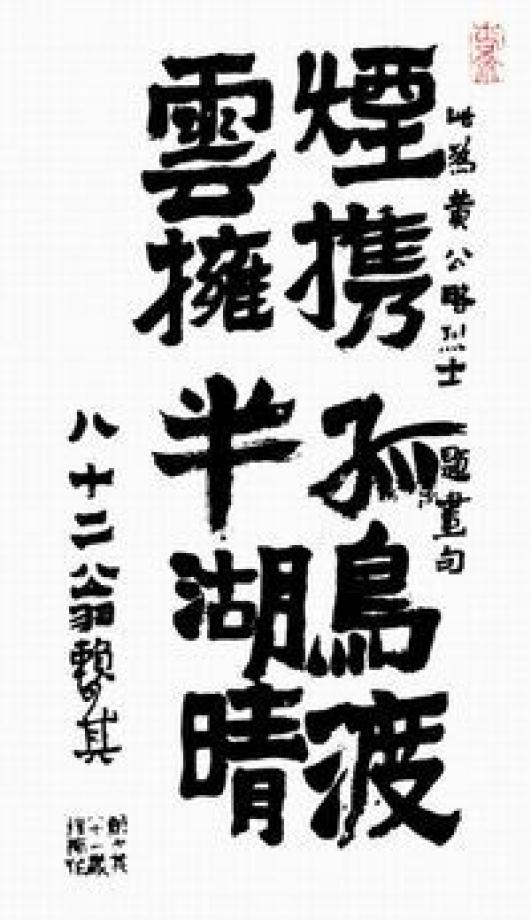 此為黄公略烈士題畫句
煙携孤鳥渡
雲擁半湖晴
八十二翁賴少其